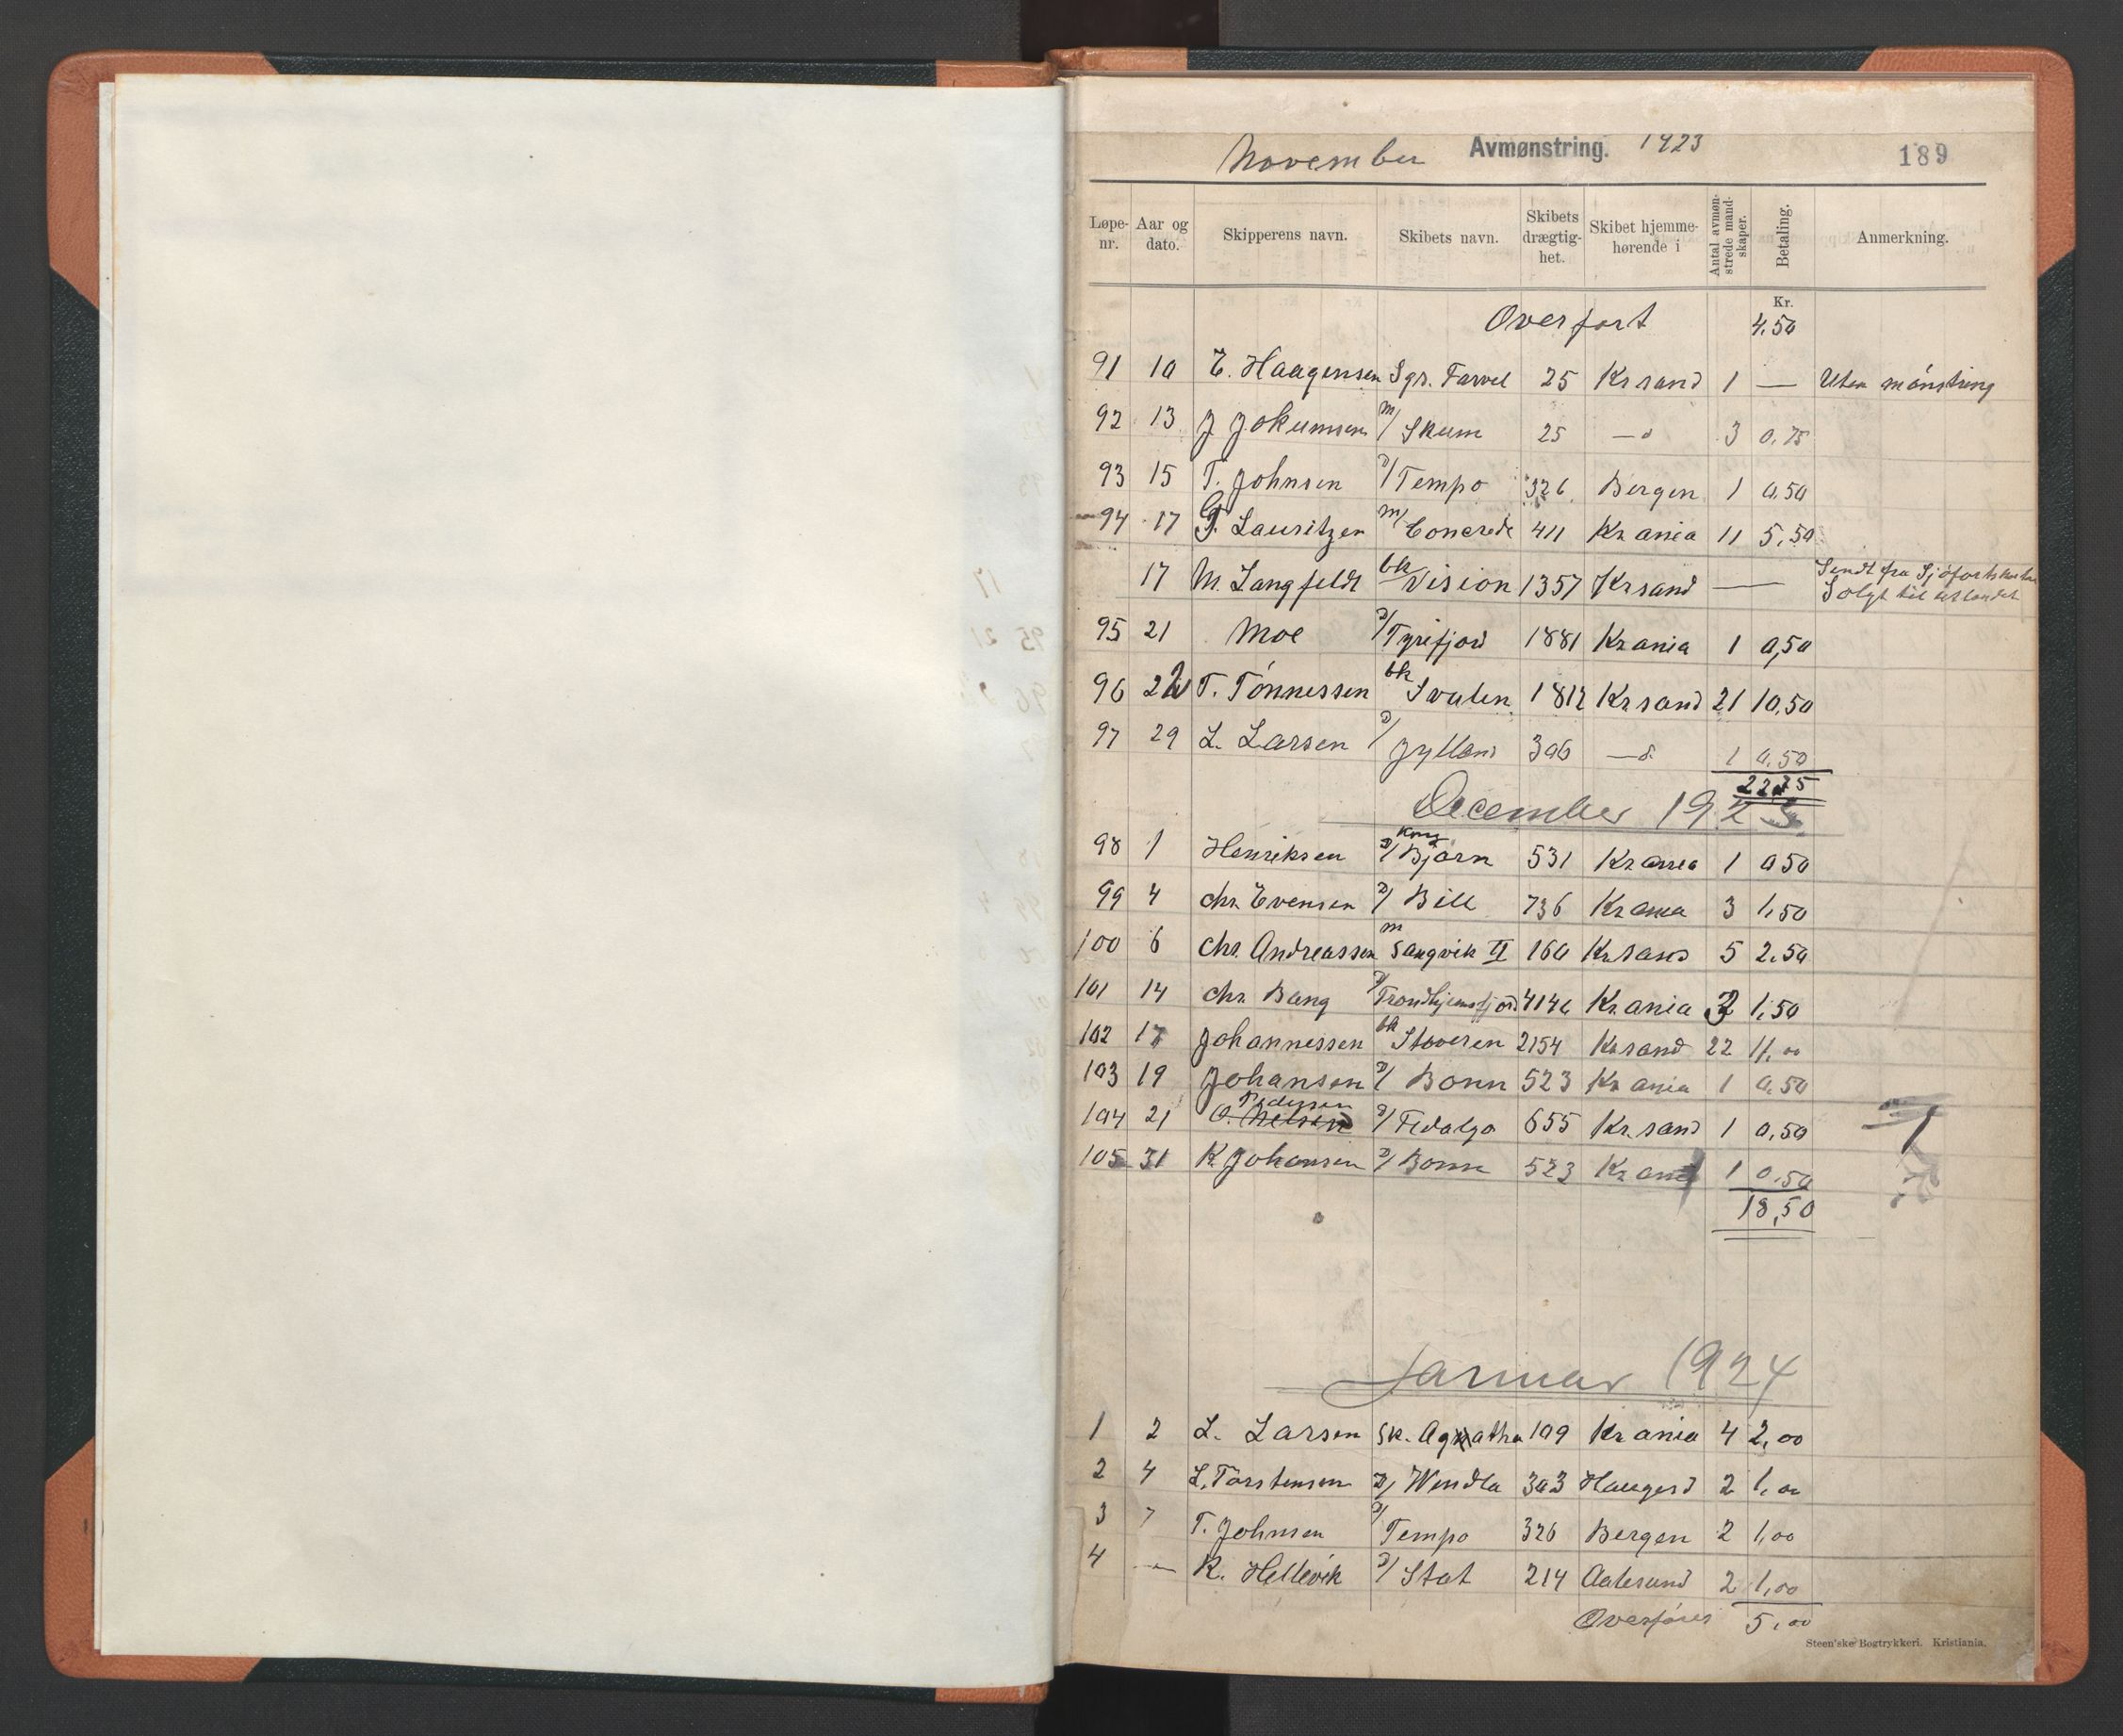 November Avmønstring. 1923 189
Løpe-nr. Aar og dato. Skipperens navn. Skibets navn. Skibets drægtig-het. Skibet hjemme-hørende i Antal avmøn-strede mand-skaper. Betaling. Anmerkning.
Kr.
Overført 4,50
91 10 E. Haagensen Sgr. Farvel 25 Krsand 1 — Uten mønstring
92 13 J Jokumsen m/ Skum 25 —d 3 0,75
93 15 T. Johnsen D/ Tempo 326 Bergen 1 0,50
94 17 G. Lauritzen m/ Concrede 411 Krania 11 5,50
17 M. Langfeldt bk Vision 1357 Krsand — Sendt fra
Solgt til utlandet
95 21 Moe D/ Tyrifjord 1881 Krania 1 0,50
96 22 T. Tönnessen bk Svalen 1812 Krsand 21 10,50
97 29 L. Larsen D/ Jylland 306 —d 1 0,50
22,75
December 1923
98 1 Henriksen D/ Kong Bjørn 531 Krania 1 0 50
99 4 Chr. Evensen D/ Bill 736 Krania 3 1,50
100 6 Chr. Andreassen m Sangvik II 160 Krsand 5 2,50
101 14 Chr. Bang D/ Trondhjemsfjord 4146 Krania 3 1,50
102 17 Johannessen bk Stoveren 2154 Krsand 22 11,00
103 19 Johansen D/ Bonn 523 Krania 1 0,50
104 21 O. Nelsen Pedersen D/ Fidalgo 655 Krsand 1 0,50
105 31 K. Johansen D/ Bonn 523 Krania 1 0,50
18,50
Januar 1924
1 2 L. Larsen Sk. Agatha 109 Krania 4 2,00
2 4 L. Torstensen D/ Wendla 303 Haugesd 2 1,00
3 7 T. Johnsen D/ Tempo 326 Bergen 2 1,00
4 — K. Hellevik D/ Stat 214 Aalesund 2 1,00
Overføres 5,00
Steen'ske Bogtrykkeri. Kristiania.